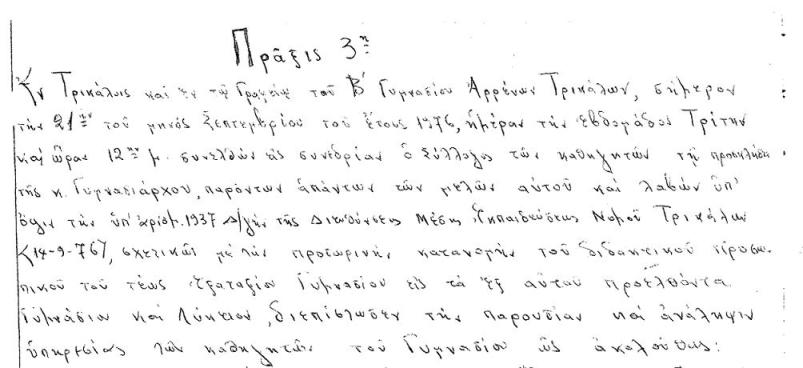 Πρᾶξις 3η
Ἐν Τρικάλοις καὶ ἐν τῷ Γραφείῳ τοῦ Β' Γυμνασίου Ἀρρένων Τρικάλων, σήμερον
τὴν 21ην τοῦ μηνὸς Σεπτεμβρίου τοῦ ἔτους 1976, ἡμέραν τῆς ἑβδομάδος Τρίτην
καὶ ὥραν 12ην μ. συνελθὼν εἰς συνεδρίαν ὁ Σύλλογος τῶν καθηγητῶν τῇ προσκλήσει
τῆς κ. Γυμνασιάρχου, παρόντων ἁπάντων τῶν μελῶν αὐτοῦ καὶ λαβὼν ὑπ'
ὄψιν τὴν ὑπ' ἀριθμ. 1937 Δ/γὴν τῆς Διευθύνσεως Μέσης Ἐκπαιδεύσεως Νομοῦ Τρικάλων
14-9-76, σχετικῶς μὲ τὴν προσωρινὴν κατανομὴν τοῦ διδακτικοῦ προσω-
πικοῦ τοῦ τέως ἑξαταξίου Γυμνασίου εἰς τὰ ἐξ αὐτοῦ προελθόντα
Γυμνάσιον καὶ Λύκειον, διεπίστωσεν τὴν παρουσίαν καὶ ἀνάληψιν
ὑπηρεσίας τῶν καθηγητῶν τοῦ Γυμνασίου ὡς ἀκολούθως: